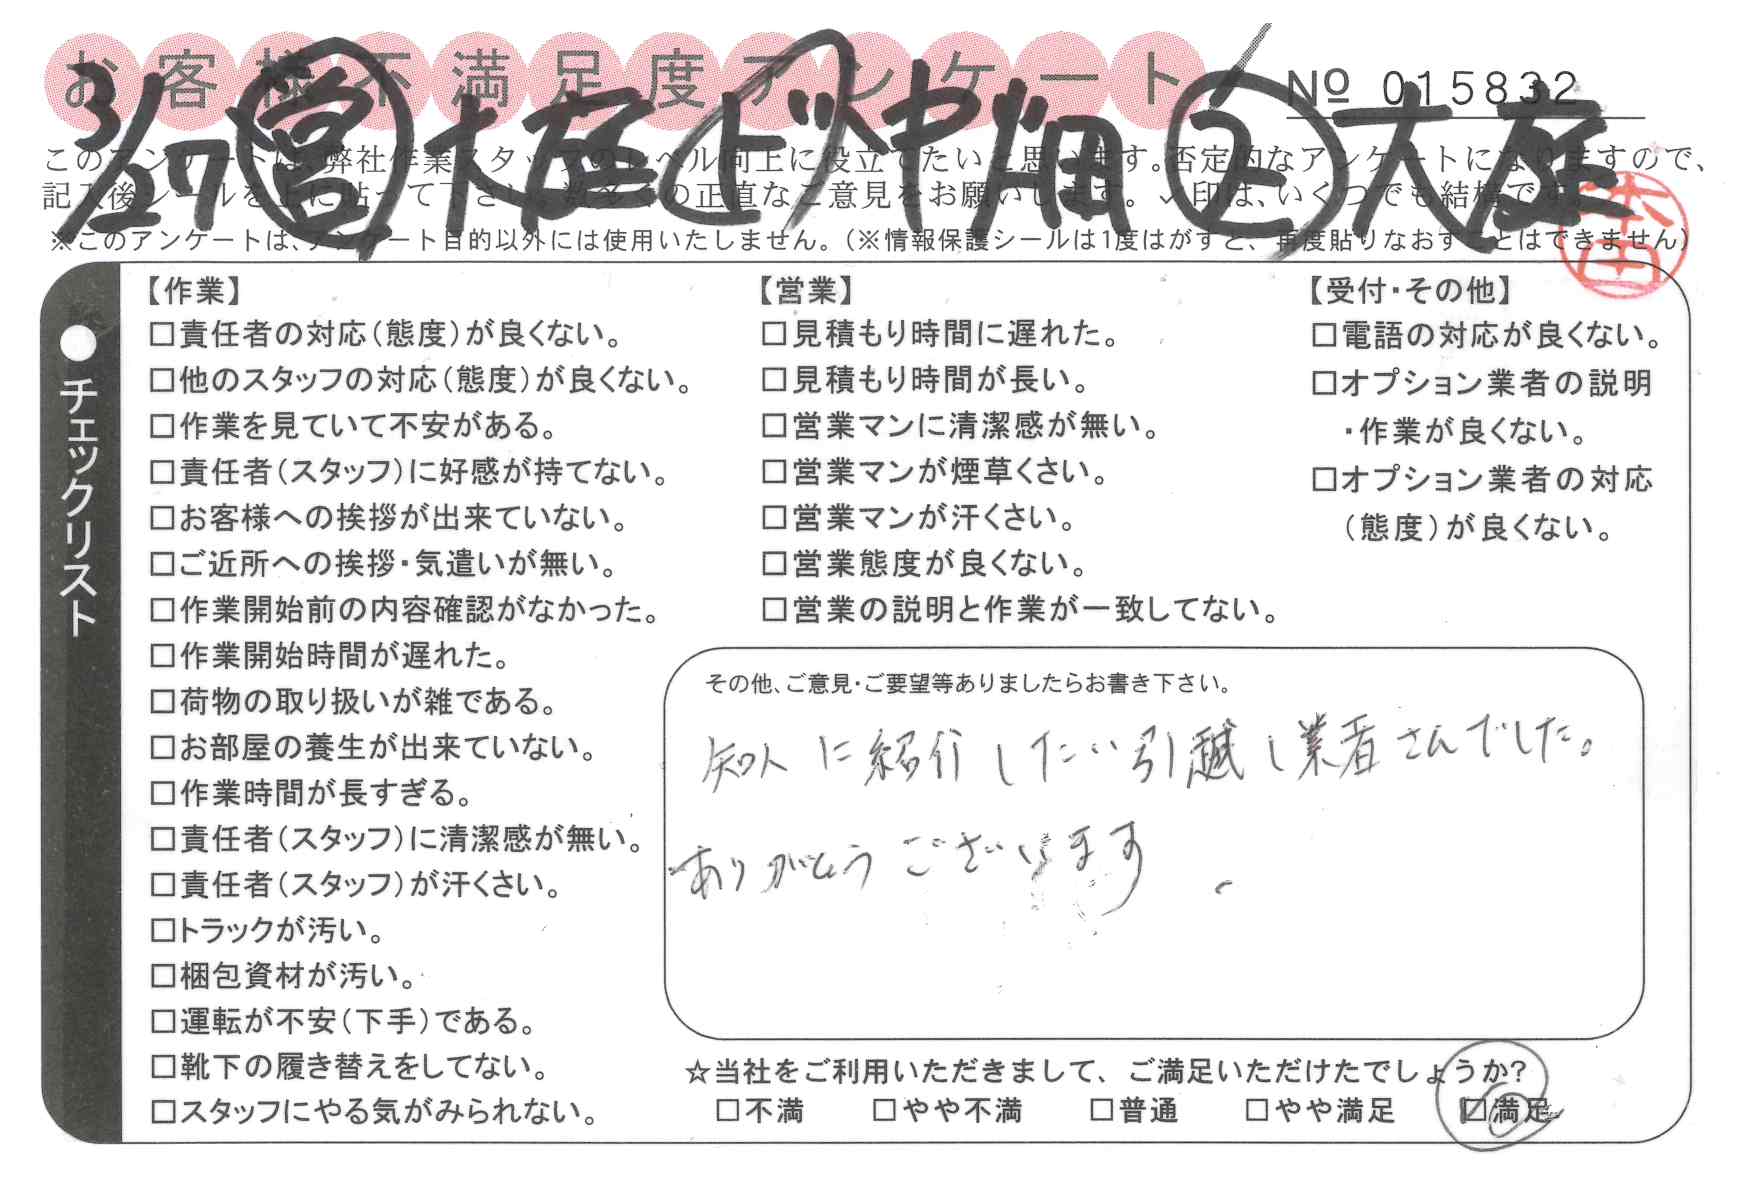 お客様不満足度アンケート
№ 015832
3/27 営 大庭 ピ 中畑 上 大庭
このアンケートは、弊社作業スタッフのレベル向上に役立てたいと思います。否定的なアンケートになりますので、
記入後シールを上に貼って下さい。数多くの正直なご意見をお願いします。✓印は、いくつでも結構です。
※このアンケートは、アンケート目的以外には使用いたしません。(※情報保護シールは1度はがすと、再度貼りなおすことはできません)
●チェックリスト
【作業】
□責任者の対応(態度)が良くない。
□他のスタッフの対応(態度)が良くない。
□作業を見ていて不安がある。
□責任者(スタッフ)に好感が持てない。
□お客様への挨拶が出来ていない。
□ご近所への挨拶・気遣いが無い。
□作業開始前の内容確認がなかった。
□作業開始時間が遅れた。
□荷物の取り扱いが雑である。
□お部屋の養生が出来ていない。
□作業時間が長すぎる。
□責任者(スタッフ)に清潔感が無い。
□責任者(スタッフ)が汗くさい。
□トラックが汚い。
□梱包資材が汚い。
□運転が不安(下手)である。
□靴下の履き替えをしてない。
□スタッフにやる気がみられない。
【営業】
□見積もり時間に遅れた。
□見積もり時間が長い。
□営業マンに清潔感が無い。
□営業マンが煙草くさい。
□営業マンが汗くさい。
□営業態度が良くない。
□営業の説明と作業が一致してない。
【受付・その他】
□電話の対応が良くない。
□オプション業者の説明
・作業が良くない。
□オプション業者の対応
(態度)が良くない。
その他、ご意見・ご要望等ありましたらお書き下さい。
知人に紹介したい引越し業者さんでした。
ありがとうございます。
☆当社をご利用いただきまして、ご満足いただけたでしょうか?
□不満 □やや不満 □普通 □やや満足 ☑満足